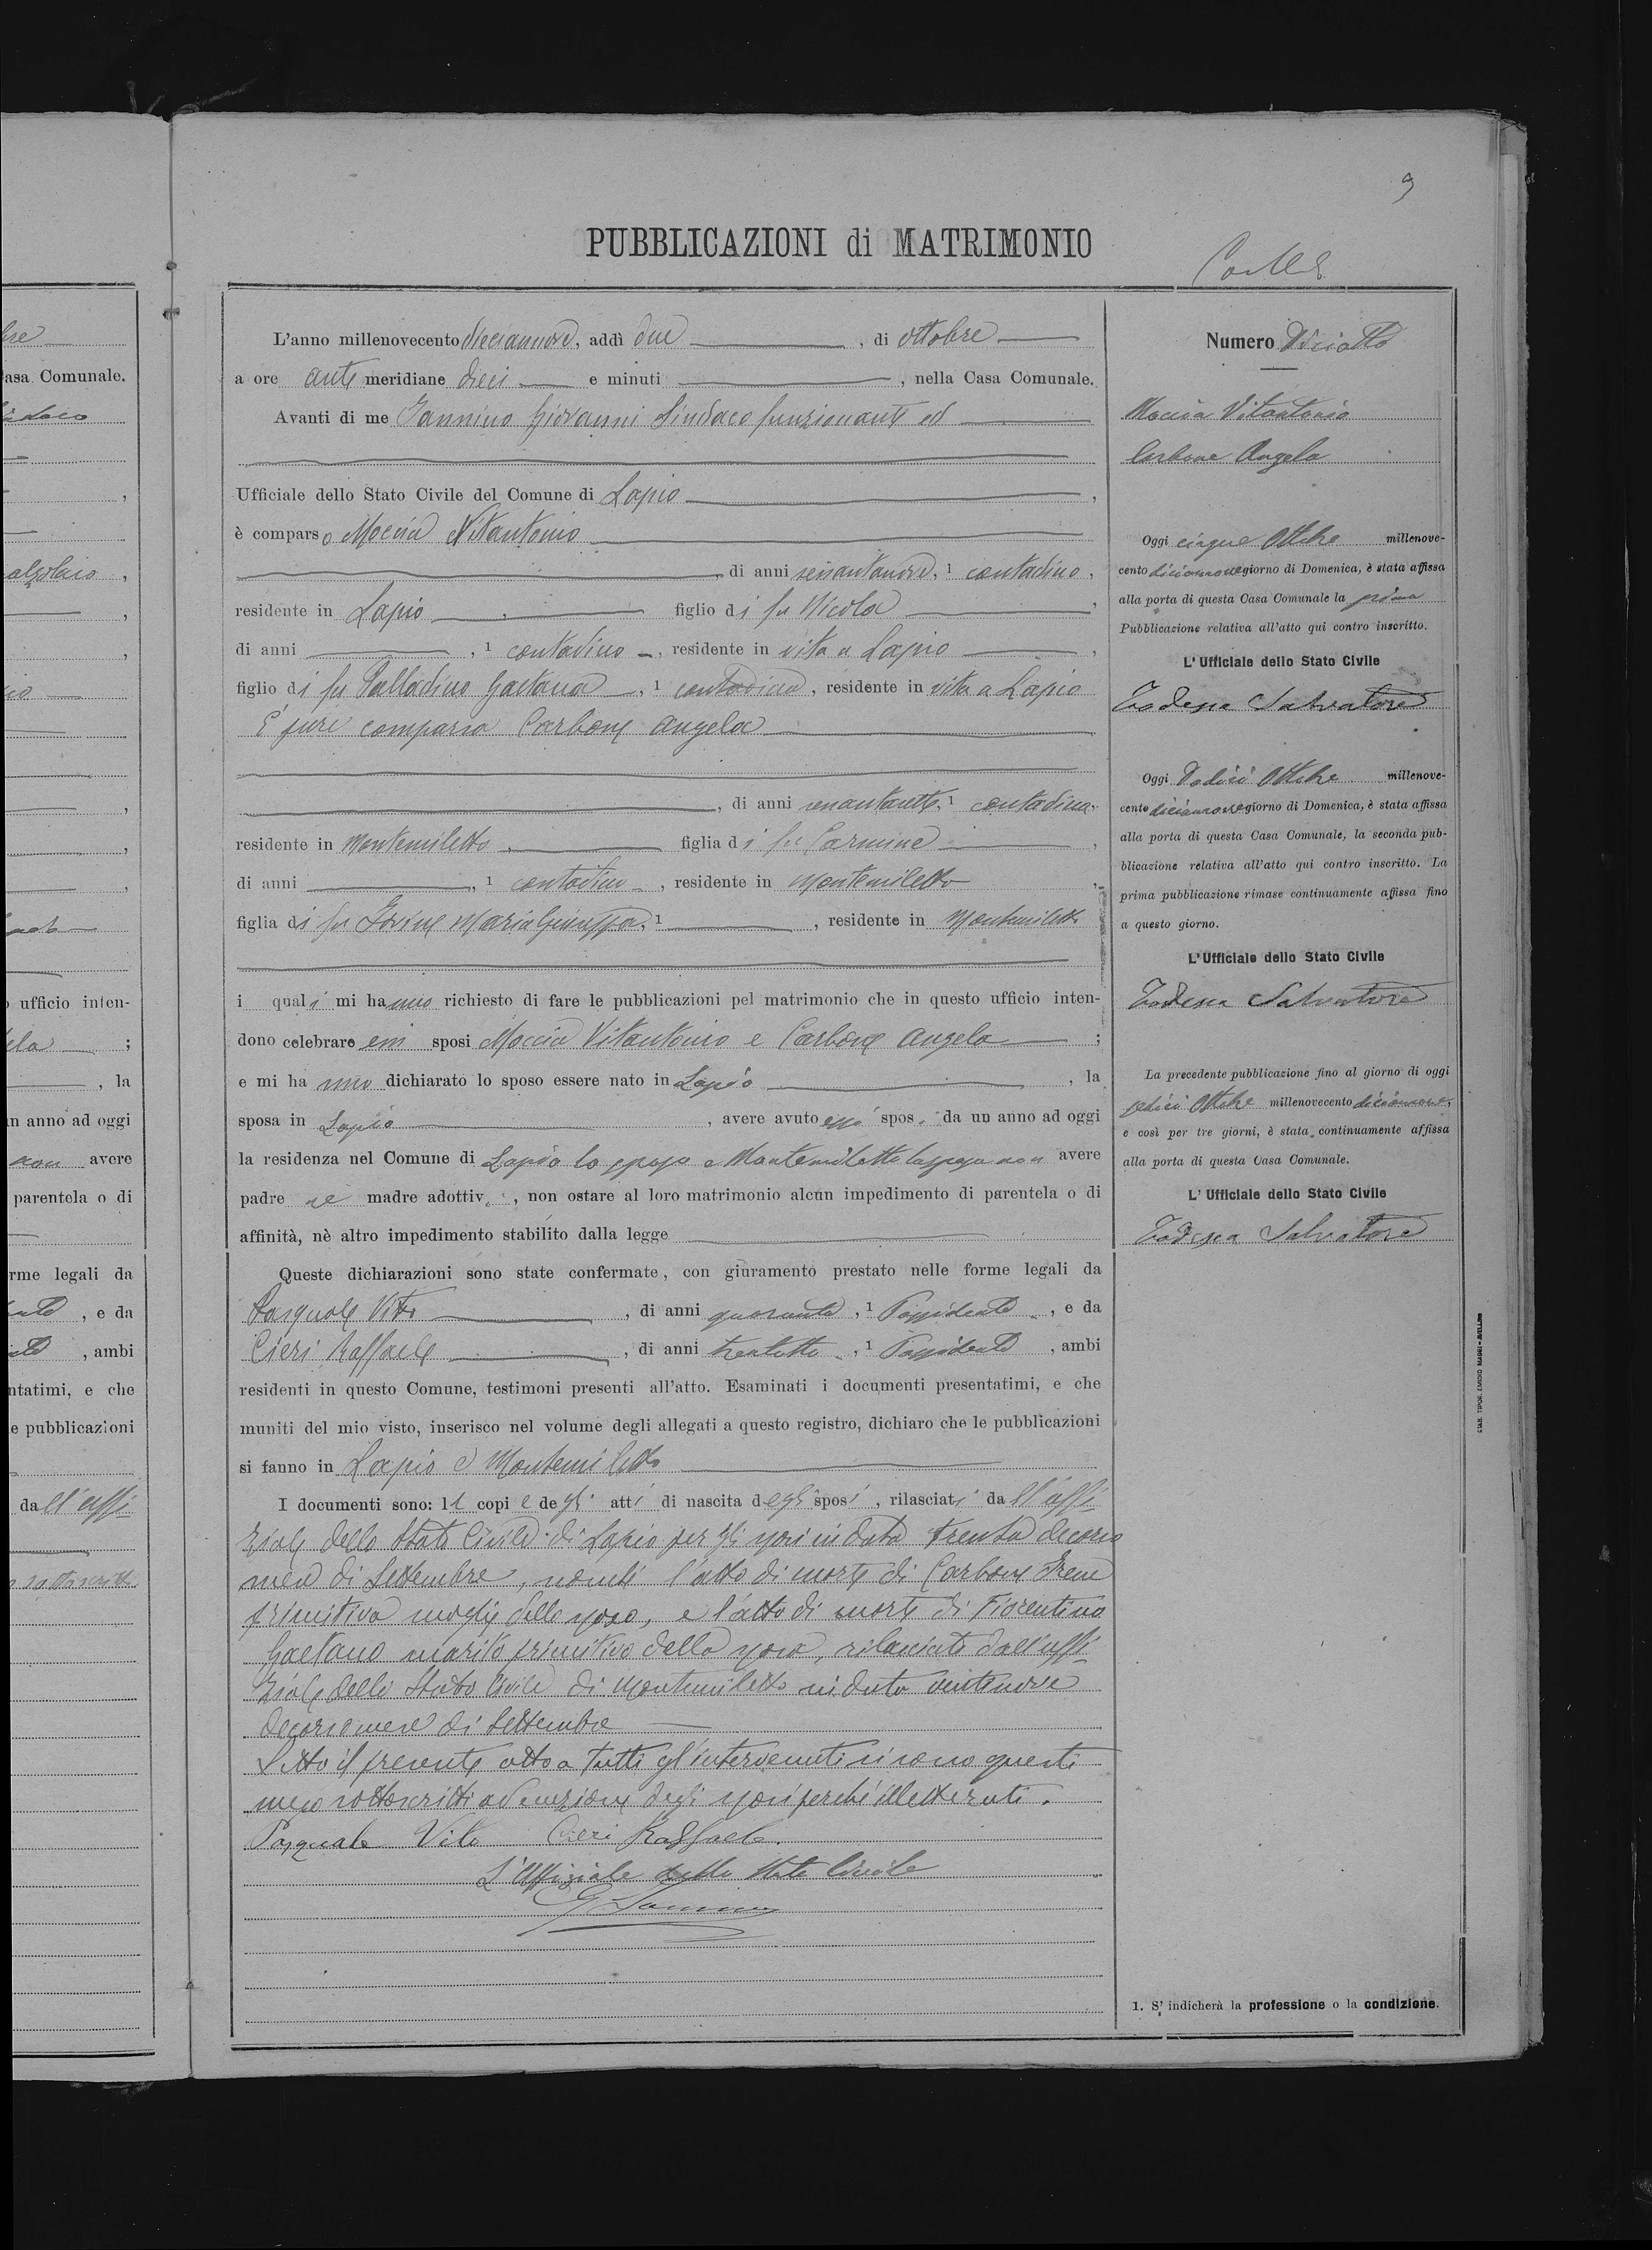 9
PUBBLICAZIONI di MATRIMONIO
L'anno millenovecento diciannove, addì due, di ottobre
a ore anti meridiane dieci e minuti, nella Casa Comunale.
Avanti di me Iannino Giovanni Sindaco funzionante ed
Ufficiale dello Stato Civile del Comune di Lapio,
è comparso Moccia Vitantonio
di anni sessantanove, 1 contadino,
residente in Lapio, figlio di fu Nicola,
di anni, 1 contadino, residente in vita a Lapio,
figlio di fu Palladino Gaetana, 1 contadina, residente in vita a Lapio
È pure comparsa Carbone Angela
, di anni 1 contadina,
residente in Montemiletto, figlia di fu Carmine,
di anni, 1 contadino, residente in Montemiletto,
figlia di fu Maria Giuseppa, 1, residente in Montemiletto
i quali mi hanno richiesto di fare le pubblicazioni pel matrimonio che in questo ufficio inten-
dono celebrare essi sposi Moccia Vitantonio e Carbone Angela;
e mi hanno dichiarato lo sposo essere nato in Lapio, la
sposa in Lapio, avere avuto essi spos. da un anno ad oggi
la residenza nel Comune di Lapio lo sposo a Montemiletto la sposa non avere
padre nè madre adottiv., non ostare al loro matrimonio alcun impedimento di parentela o di
affinità, nè altro impedimento stabilito dalla legge
Queste dichiarazioni sono state confermate, con giuramento prestato nelle forme legali da
Pasquale Vito, di anni quaranta, 1 Possidente, e da
Cieri Raffaele, di anni trentotto, 1 Possidente, ambi
residenti in questo Comune, testimoni presenti all'atto. Esaminati i documenti presentatimi, e che
muniti del mio visto, inserisco nel volume degli allegati a questo registro, dichiaro che le pubblicazioni
si fanno in Lapio e Montemiletto
I documenti sono: le copie degli atti di nascita degli sposi, rilasciati dall'uffi-
ziale dello Stato Civile di Lapio per gli sposi in data trenta decorso
mese di Settembre, nonchè l'atto di morte di Carbone Irene
primitiva moglie dello sposo, e l'atto di morte di Fiorentino
Gaetano marito primitivo della sposa, rilasciati dall'uffi-
ziale dello Stato Civile di Montemiletto in data ventinove
decorso mese di Settembre
Letto il presente atto a tutti gl'intervenuti si sono questi
meco sottoscritti ad eccezione degli sposi perchè illetterati.
Pasquale Vito Cieri Raffaele.
L'Uffiziale dello Stato Civile
G Iannino
Numero Diciotto
Moccia Vitantonio
Carbone Angela
Oggi cinque Ottobre millenove-
cento diciannove giorno di Domenica, è stata affissa
alla porta di questa Casa Comunale la prima
Pubblicazione relativa all'atto qui contro inscritto.
L'Ufficiale dello Stato Civile
Todesca Salvatore
Oggi Dodici Ottobre millenove-
cento diciannove giorno di Domenica, è stata affissa
alla porta di questa Casa Comunale, la seconda pub-
blicazione relativa all'atto qui contro inscritto. La
prima pubblicazione rimase continuamente affissa fino
a questo giorno.
L'Ufficiale dello Stato Civile
Todesca Salvatore
La precedente pubblicazione fino al giorno di oggi
sedici Ottobre millenovecento diciannove,
e così per tre giorni, è stata continuamente affissa
alla porta di questa Casa Comunale.
L'Ufficiale dello Stato Civile
Todesca Salvatore
1. S' indicherà la professione o la condizione.
STAB. TIPOR. EMIDIO MAGGI - AVELLINO
asa Comunale.
ufficio inten-
;
, la
n anno ad oggi
non avere
parentela o di
rme legali da
, e da
, ambi
ntatimi, e che
e pubblicazioni
dall'uffi-